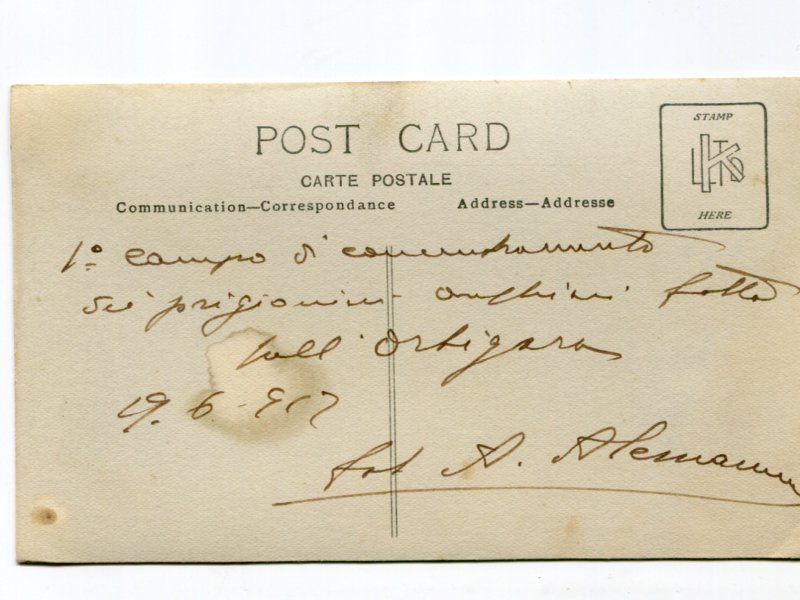 POST CARD
CARTE POSTALE
Communication—Correspondance Address—Addresse
STAMP
HERE
1º campo di concentramento
dei prigionieri austriaci fatto
sull' Ortigara
19.6.917
fot A. Alemanni